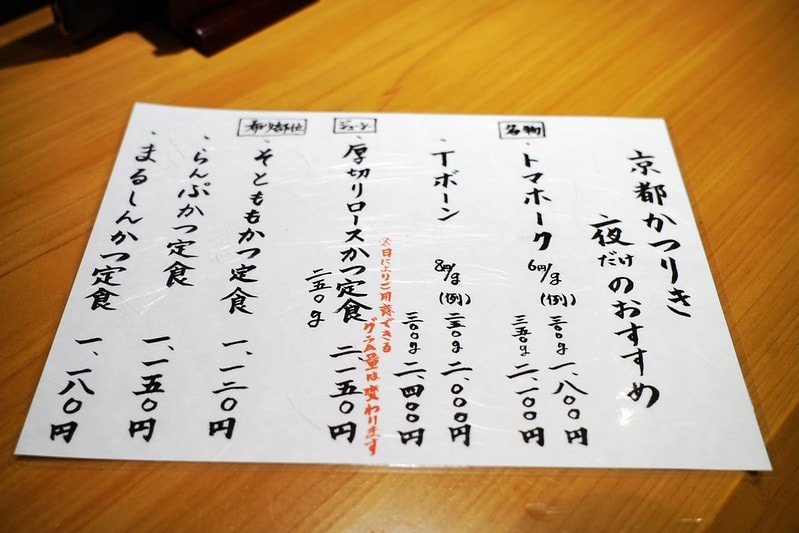 京都かつりき
夜だけのおすすめ
名物
・トマホーク 6円/g (例) 三〇〇g 一、八〇〇円
三五〇g 二、一〇〇円
・Tボーン 8円/g (例) 二五〇g 二、〇〇〇円
三〇〇g 二、四〇〇円
※日によりご用意できる
グラム量は変わります
ジューシー
・厚切りロースかつ定食 二、一五〇円
二五〇g
希少部位
・そとももかつ定食 一、一二〇円
・らんぷかつ定食 一、一五〇円
・まるしんかつ定食 一、一八〇円